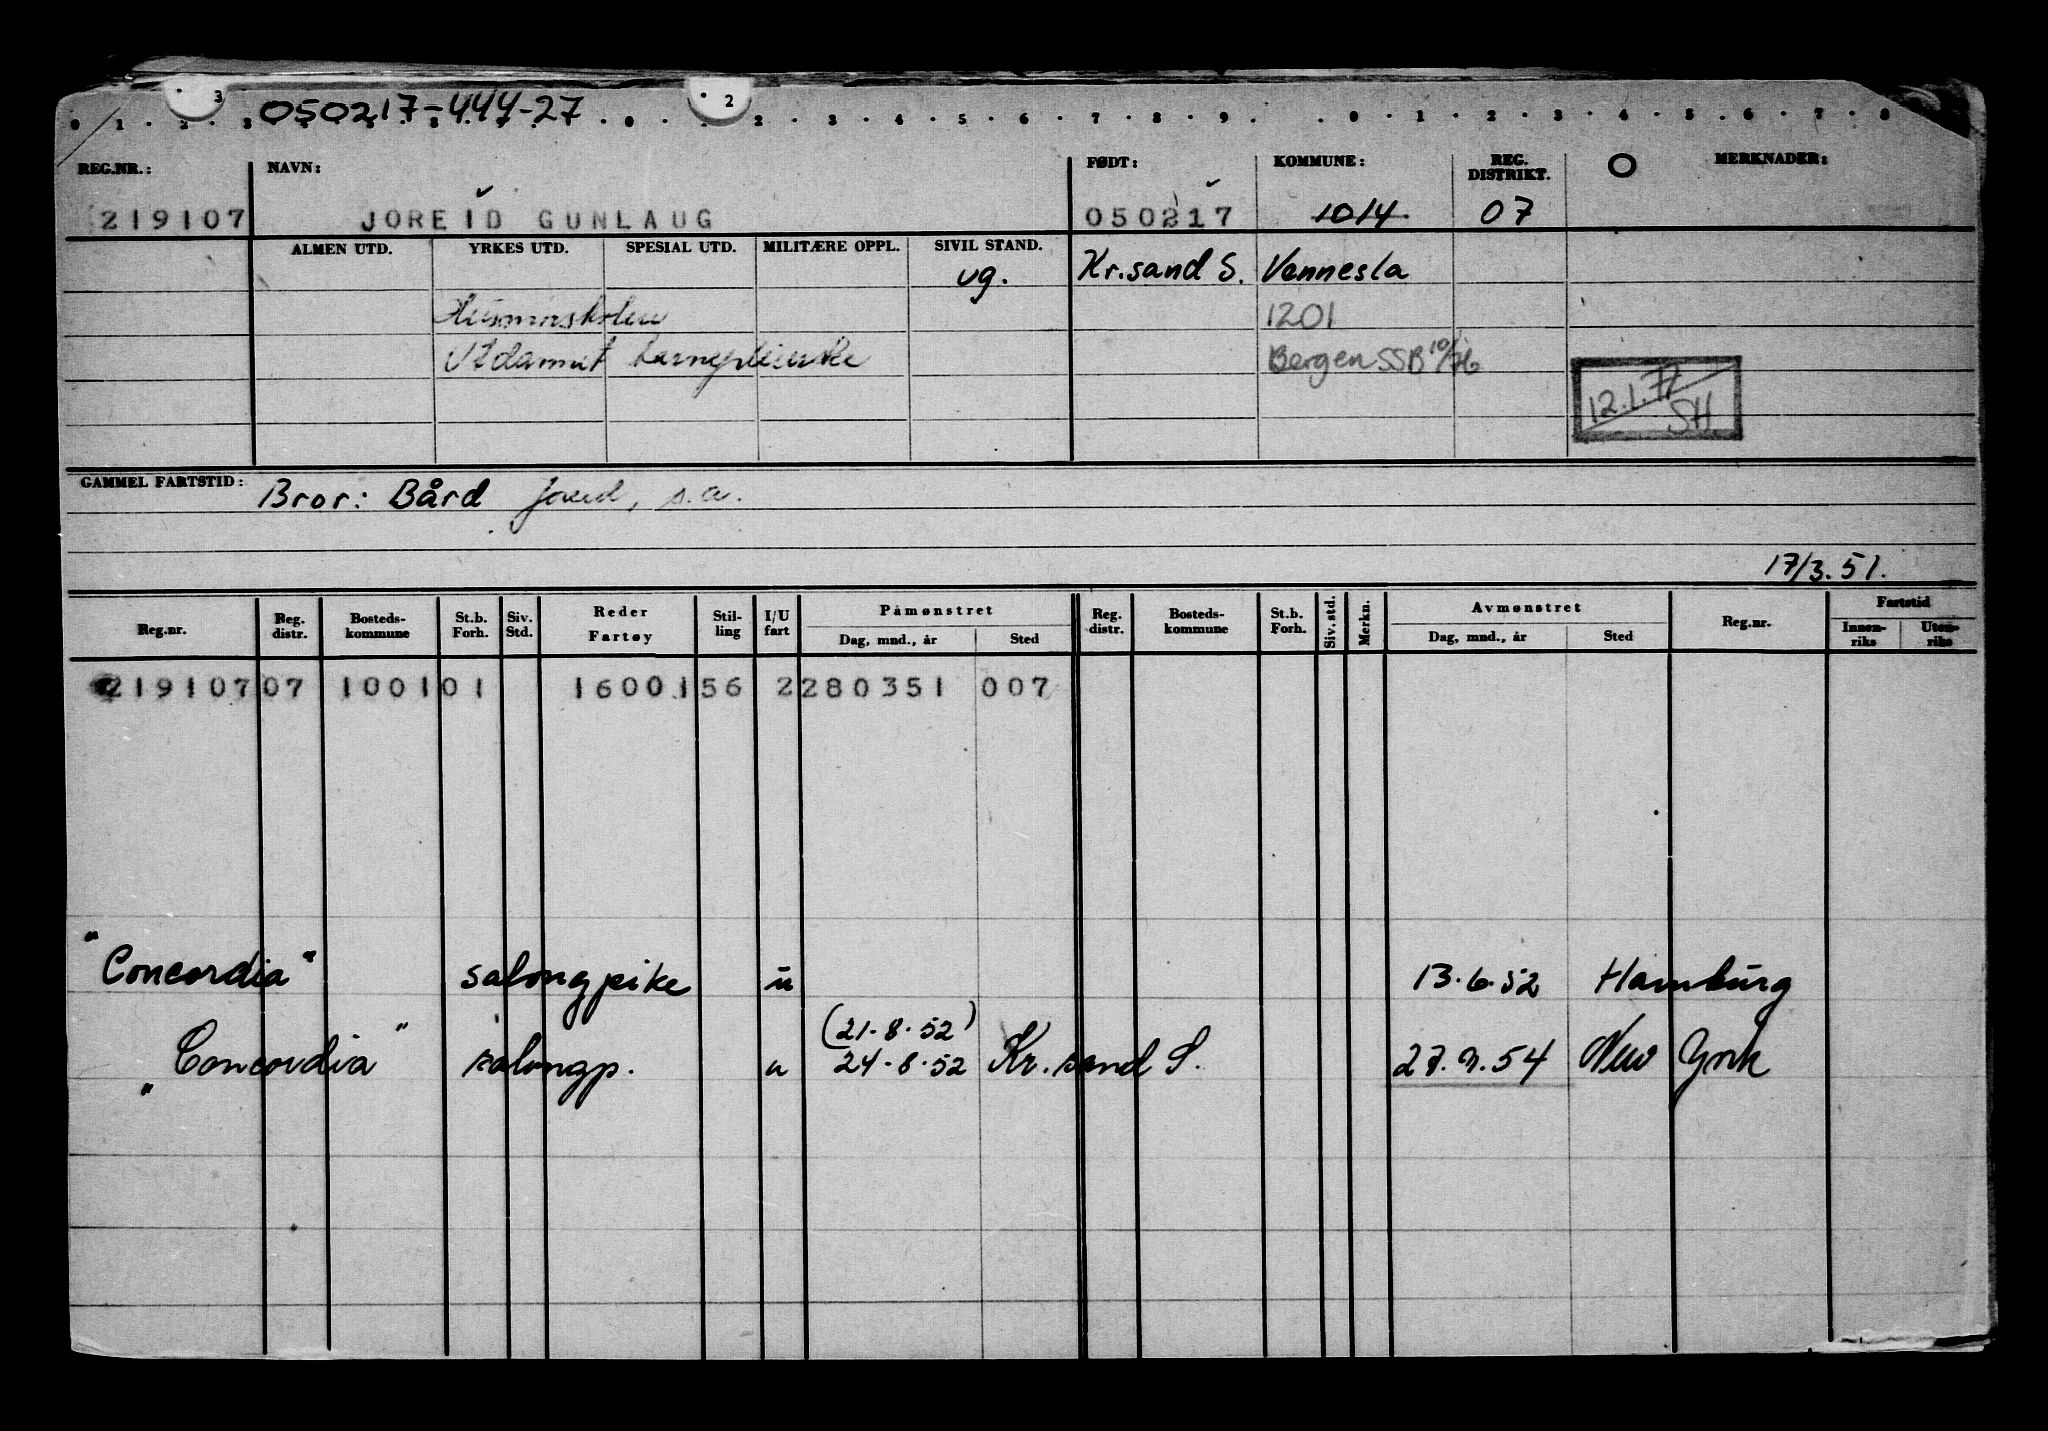 3 2
050217-444-27
0 1 2 3 0 2 3 4 5 6 7 8 9 0 1 2 3 4 5 6 7 8
REG.NR.: NAVN: FØDT: KOMMUNE: REG. DISTRIKT. O MERKNADER:
219107 JOREID GUNLAUG 050217 1014 07
ALMEN UTD. YRKES UTD. SPESIAL UTD. MILITÆRE OPPL. SIVIL STAND.
ug. Kr.sand S. Vennesla
Husmorskolen 1201
Utdannet barnepleierske Bergen SSB 10/76
12.1.77
SH.
GAMMEL FARTSTID: Bror: Bård Joreid, s.a.
17/3.51.
Reg.nr. Reg. distr. Bosteds-kommune St.b. Forh. Siv. Std. Reder Fartøy Stil-ling I/U fart Påmønstret Dag, mnd., år Sted Reg. distr. Bosteds-kommune St.b. Forh. Siv. std. Merkn. Avmønstret Dag, mnd., år Sted Reg.nr. Fartstid Innen-riks Uten-riks
219107 07 1001 01 16001 56 2 280351 007
"Concordia" salongpike u 13.6.52 Hamburg
(21.8.52)
"Concordia" salongp. u 24.8.52 Kr.sand S. 54 New York